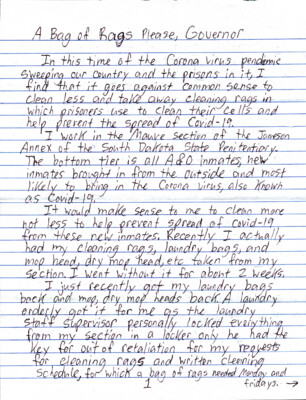 A Bag of Rags Please, Governor
In this time of the Corona virus pendemic
sweeping our country and the prisons in it, I
find that it goes against common sense to
clean less and take away cleaning rags in
which prisoners use to clean their cells and
help prevent the spread of Covid-19.
I work in the Mauve section of the Jameson
Annex of the South Dakota State Penitentiary.
The bottom tier is all A&O inmates, new
inmates brought in from the outside and most
likely to bring in the Corona virus, also known
as Covid-19.
It would make sense to me to clean more
not less to help prevent spread of Covid-19
from these new inmates. Recently I actually
had my cleaning rags, laundry bags, and
mop head, dry mop head, etc taken from my
section. I went without it for about 2 weeks.
I just recently got my laundry bags
back and mop, dry mop heads back. A laundry
orderly got it for me as the laundry
staff supervisor personally locked everything
from my section in a locker only he had the
key for out of retaliation for my requests
for cleaning rags and written cleaning
schedule, for which a bag of rags needed Monday and
1 fridays. →